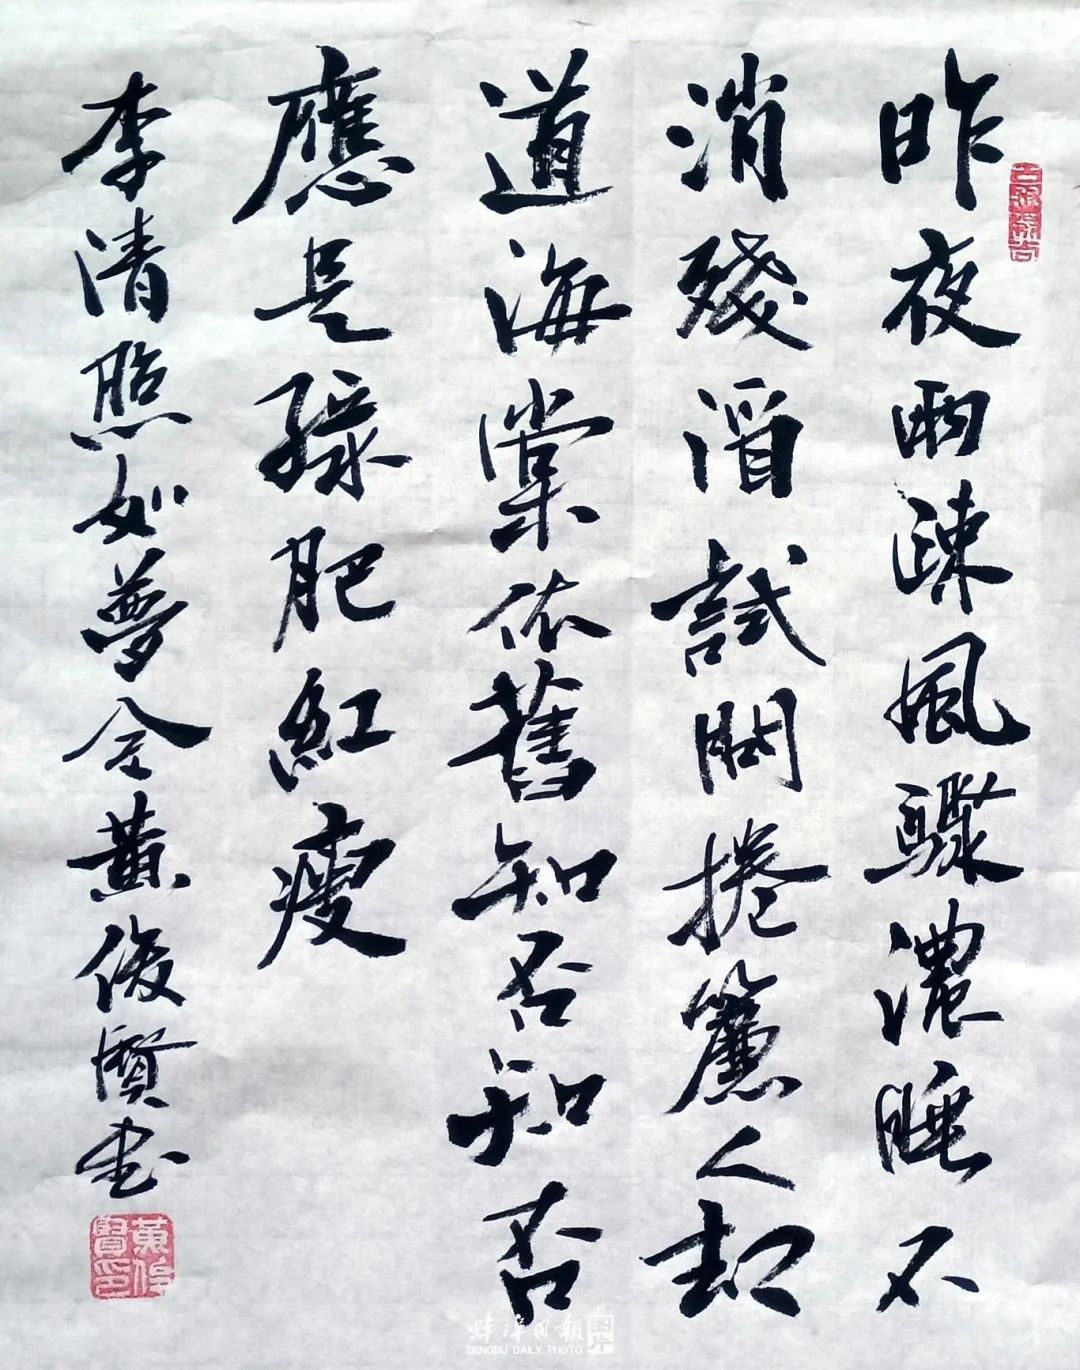 昨夜雨疎風驟濃睡不
消殘酒試問捲簾人却
道海棠依舊知否知否
應是綠肥紅瘦
李清照如夢令黃俊賢書
黃俊賢印
蚌埠日報
BENGBU DAILY PHOTO